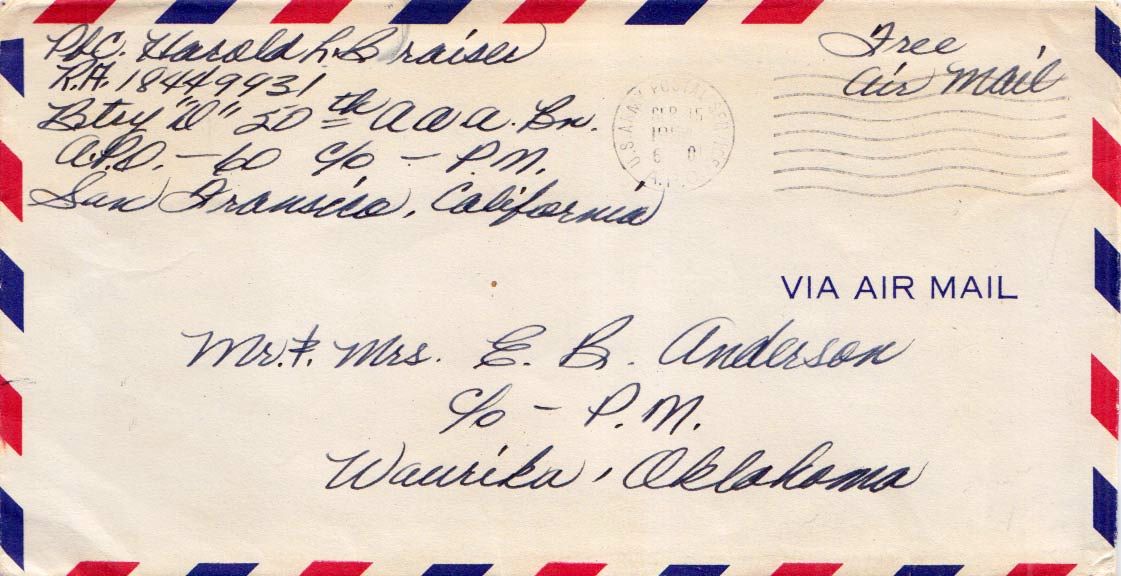 Pfc. Harold L. Braiser
R.A. 18449931
Btry "D" 50th a a a. Bn.
A.P.O. - 60 c/o - P.M.
San Fransico, California
Free
Air Mail
U.S. ARMY POSTAL SERVICE
SEP 15
A.P.O.
VIA AIR MAIL
Mr. & Mrs. E. B. Anderson
c/o - P.M.
Waurika, Oklahoma